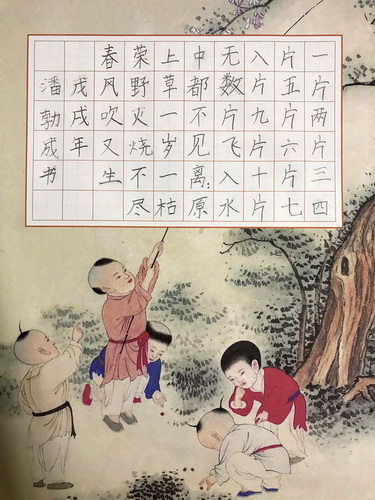 一片两片三四
片五片六片七
八片九片十片
无数片飞入水
中都不见离:原
上草一岁一枯
荣野火烧不尽
春风吹又生
戊戌年
潘勃成书